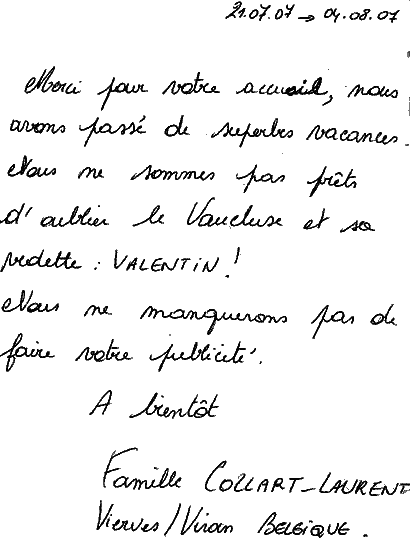 21.07.07 → 04.08.07
Merci pour votre accueil, nous
avons passé de superbes vacances.
Nous ne sommes pas prêts
d'oublier le Vaucluse et sa
vedette : VALENTIN !
Nous ne manquerons pas de
faire votre publicité.
A bientôt
Famille COLLART-LAURENT
Vierves/Viroin BELGIQUE.